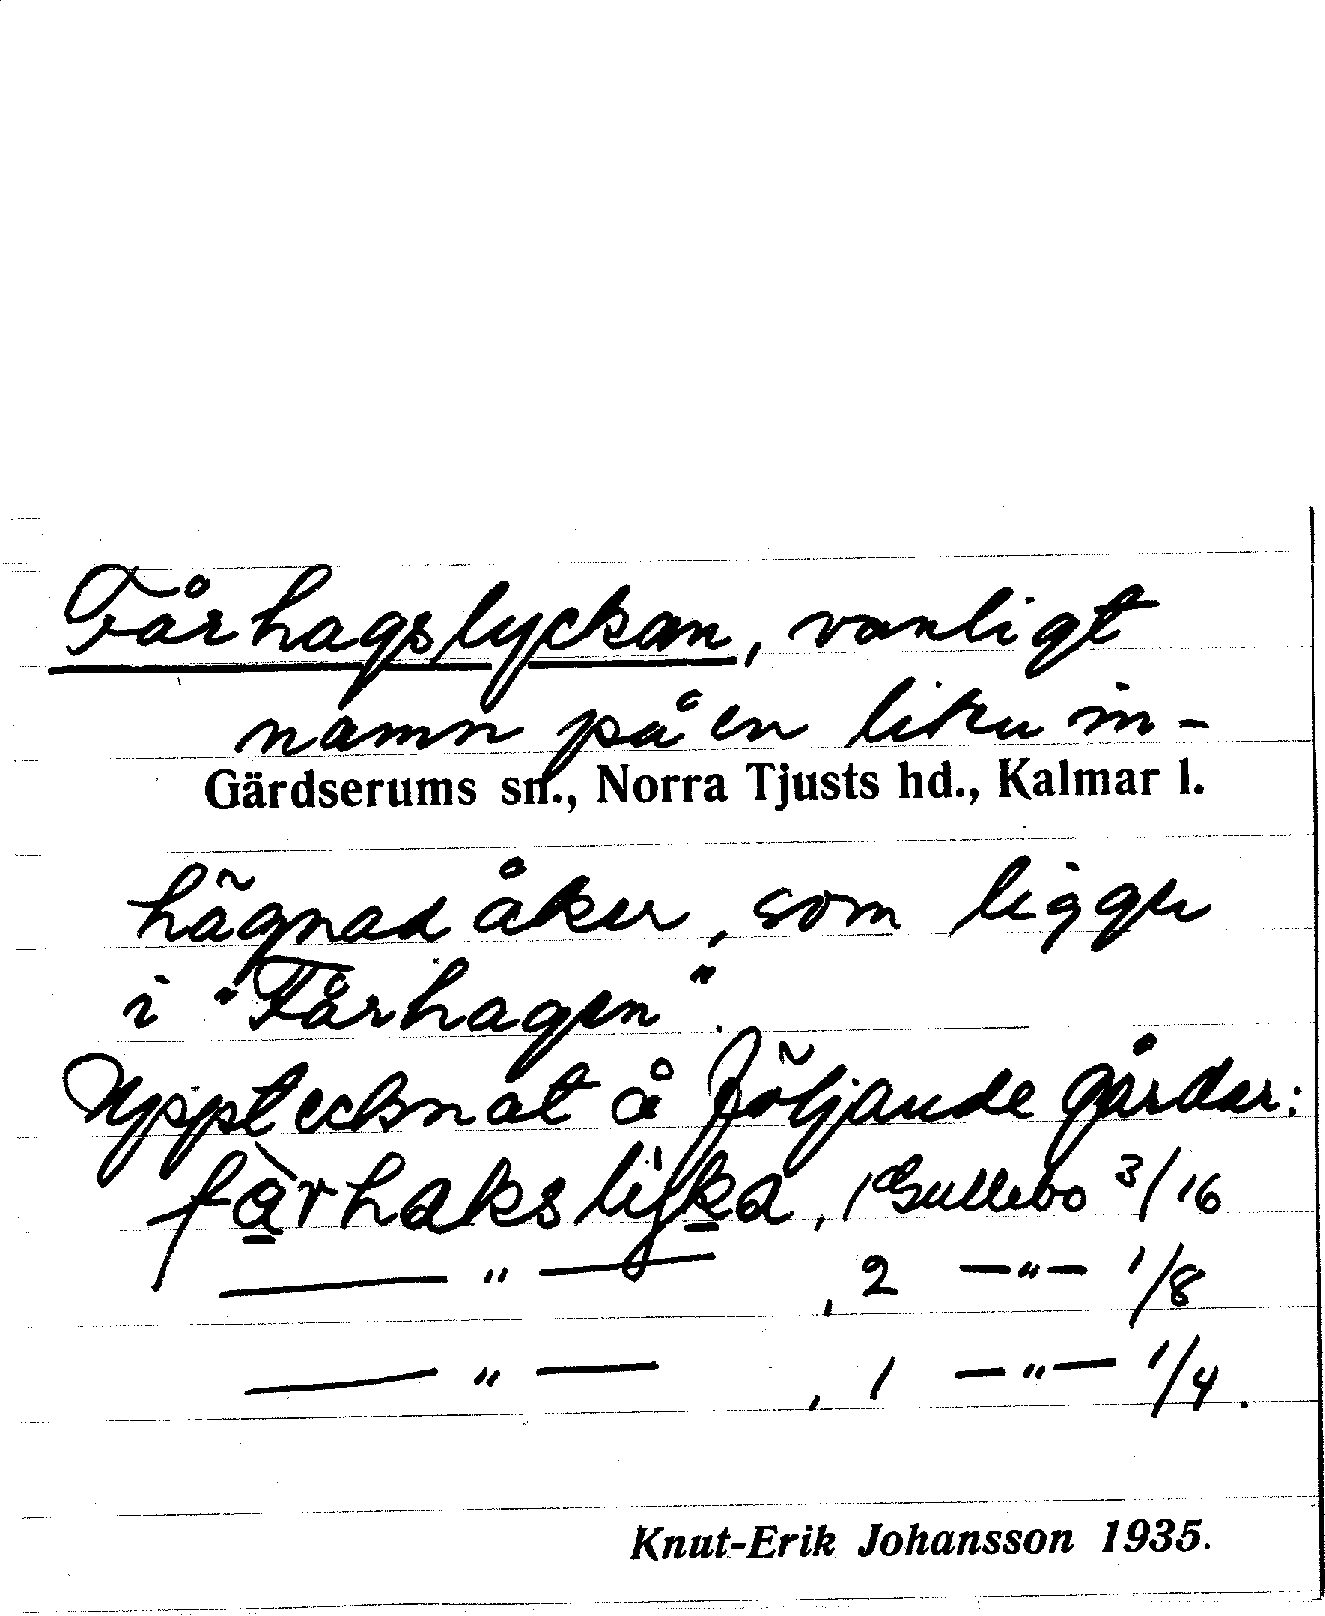 Fårhagslyckan, vanligt
namn på en liten in-
Gärdserums sn., Norra Tjusts hd., Kalmar l.
hägnad åker, som ligger
i "Fårhagen".
Upptecknat å följande gårdar:
fàrhakslỳka, 1 Gullebo 3/16
— " — , 2 — " — 1/8
— " — , 1 — " — 1/4.
Knut-Erik Johansson 1935.